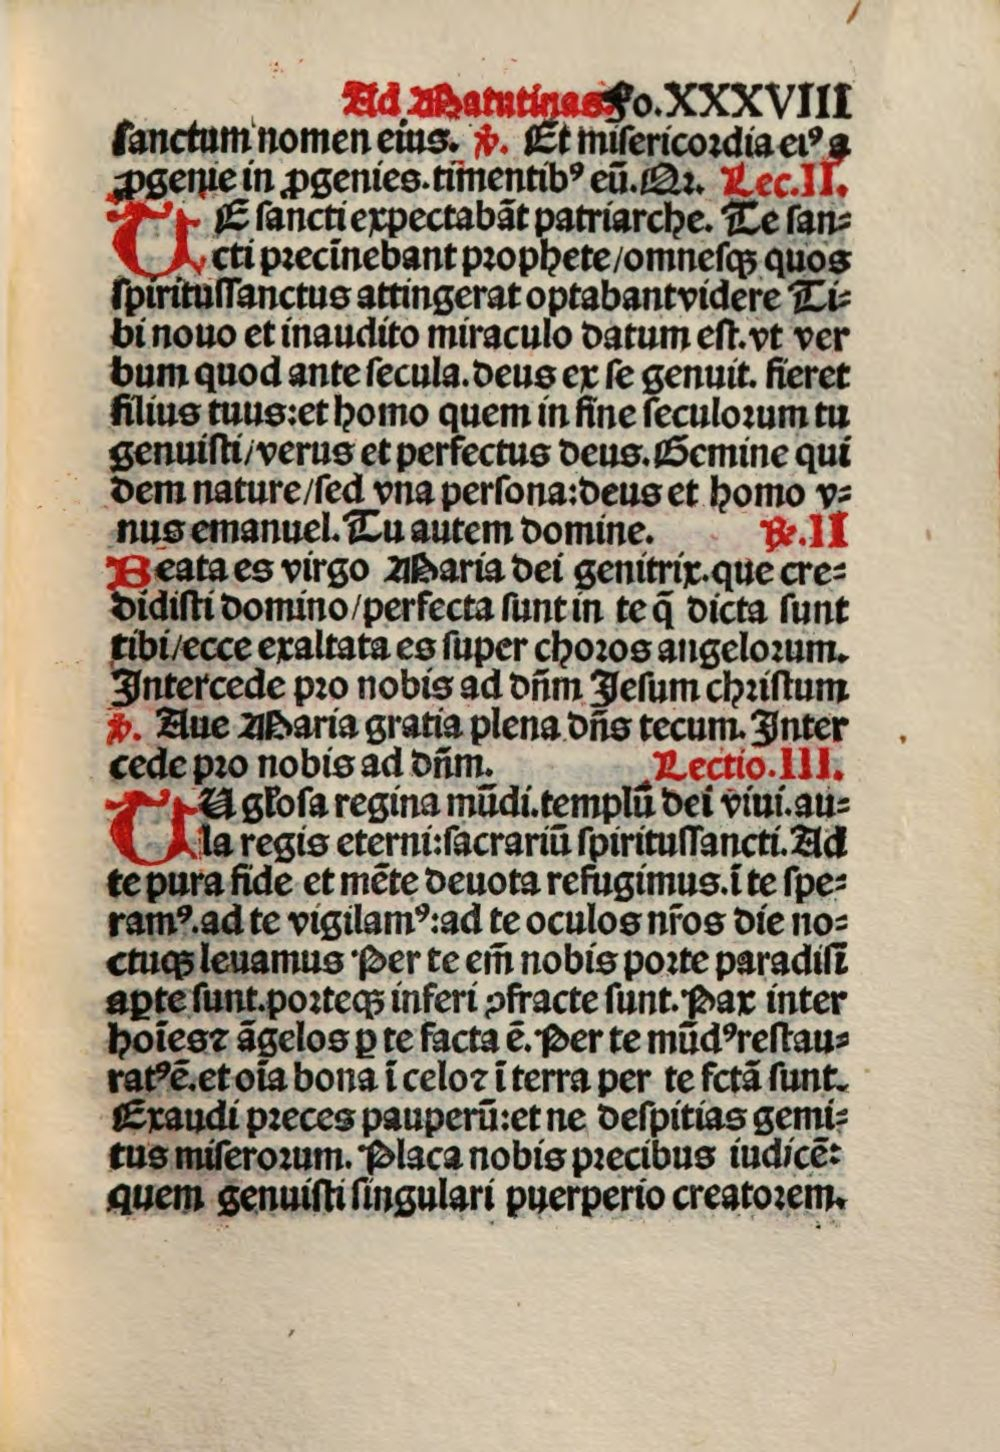 Ad Matutinas. Fo.XXXVIII
sanctum nomen eius. ℣. Et misericordia ei⁹ a
ꝓgenie in ꝓgenies.timentib⁹ eū.Qꝛ. Lec.II.
TE sancti expectabāt patriarche. Te san⸗
cti precīnebant prophete/omnesqꝫ quos
spiritussanctus attingerat optabant videre Ti⸗
bi nouo et inaudito miraculo datum est.vt ver
bum quod ante secula.deus ex se genuit. fieret
filius tuus:et homo quem in fine seculorum tu
genuisti/verus et perfectus deus.Gemine qui
dem nature/sed vna persona:deus et homo v⸗
nus emanuel.Tu autem domine. ℟.II
Beata es virgo Maria dei genitrix.que cre⸗
didisti domino/perfecta sunt in te q̄ dicta sunt
tibi/ecce exaltata es super choros angelorum.
Intercede pro nobis ad dn̄m Jesum christum
℣. Aue Maria gratia plena dn̄s tecum. Inter
cede pro nobis ad dn̄m. Lectio.III.
TU gl̄osa regina mūdi.templū dei viui.au⸗
la regis eterni:sacrariū spiritussancti.Ad
te pura fide et mēte deuota refugimus.ī te spe⸗
ram⁹.ad te vigilam⁹:ad te oculos nr̄os die no⸗
ctuqꝫ leuamus Per te em̄ nobis porte paradisī
aꝑte sunt.porteqꝫ inferi ꝯfracte sunt.Pax inter
hoīesꝛ āgelos ꝑ te facta ē.Per te mūd⁹restau⸗
rat⁹ē.et oīa bona ī celoꝛ ī terra per te fctā sunt.
Exaudi preces pauperū:et ne despitias gemi⸗
tus miserorum. Placa nobis precibus iudicē:
quem genuisti singulari puerperio creatorem.